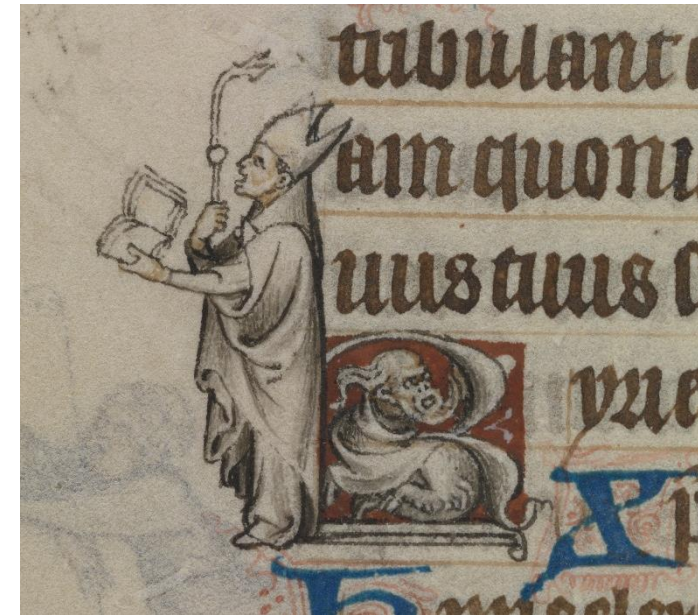 tribulant
am quoni
uus tuus
yrie
Xp